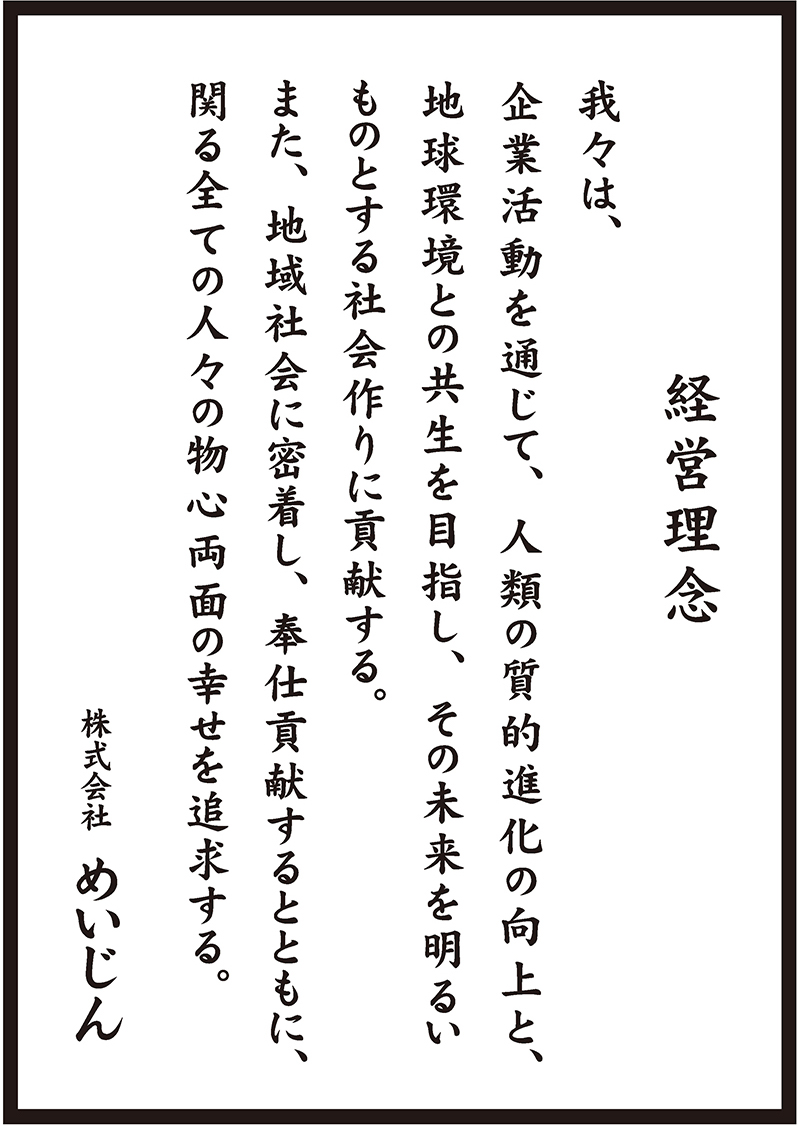 経営理念
我々は、
企業活動を通じて、人類の質的進化の向上と、
地球環境との共生を目指し、その未来を明るい
ものとする社会作りに貢献する。
また、地域社会に密着し、奉仕貢献するとともに、
関る全ての人々の物心両面の幸せを追求する。
株式会社 めいじん